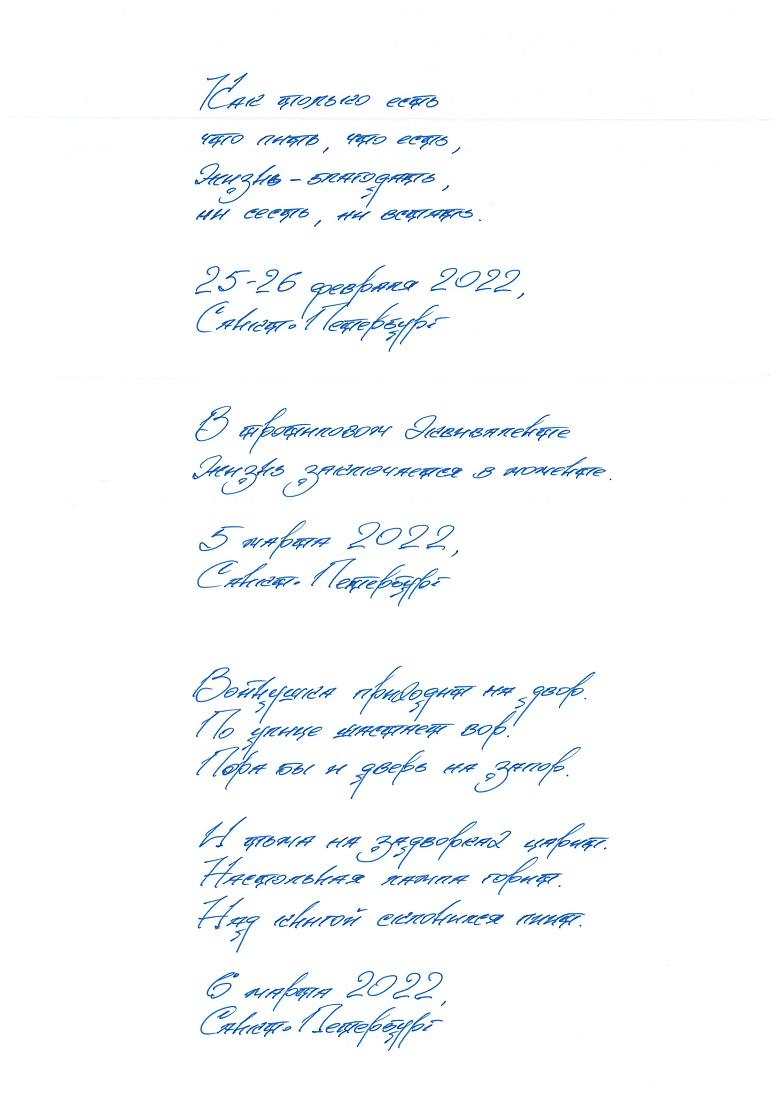 Как только есть
что пить, что есть,
Жизнь – благодать,
ни сесть, ни встать.
25-26 февраля 2022,
Санкт-Петербург
В тротиловом эквиваленте
Жизнь заключается в моменте.
5 марта 2022,
Санкт-Петербург
Войнушка приходит на двор.
По улице шастает вор.
Пора бы и дверь на запор.
И тьма на задворках царит.
Настольная лампа горит.
Над книгой склонился пиит.
6 марта 2022,
Санкт-Петербург